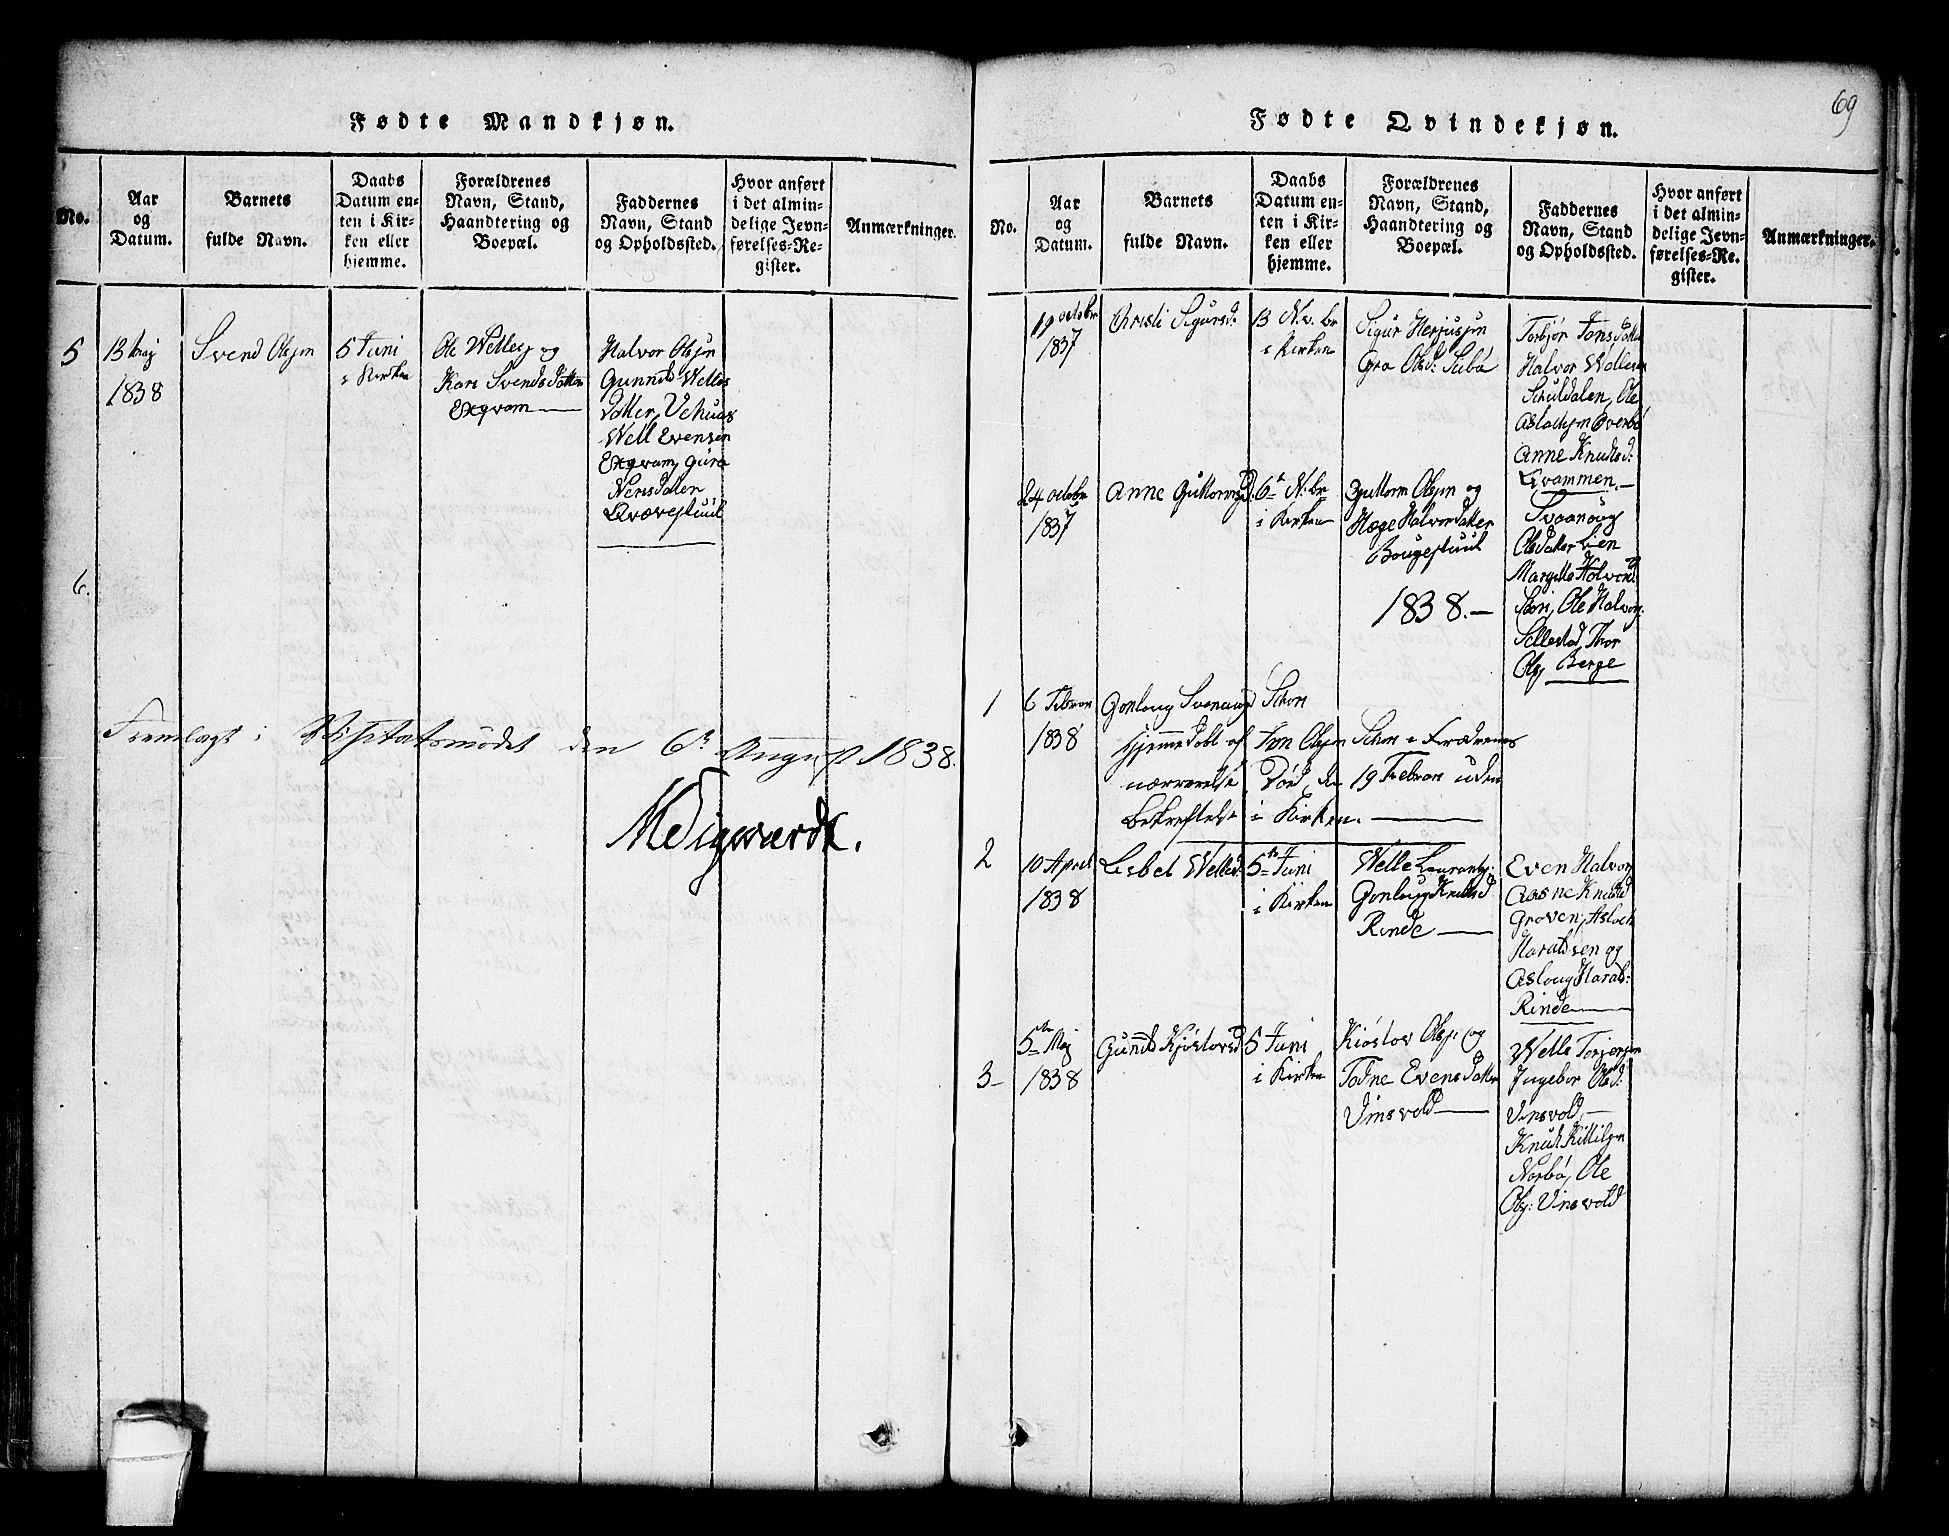 Fødte Mandkjøn.
No.
Aar
og
Datum.
Barnets
fulde Navn.
Daabs
Datum en-
ten i Kir-
ken eller
hjemme.
Forældrenes
Navn, Stand,
Haandtering og
Boepæl.
Faddernes
Navn, Stand
og Opholdssted.
Hvor anført
i det almin-
delige Jevn-
førelses-Re-
gister.
Anmærkninger.
5
13 Maj
1838
Svend Olsjøn
5 Juni
i Kirken
Ole Wellesj og
Kari Svends Datter
Exqvam
Halvor Olsjøn
Gunnild Welles
Datter, Vehuus
Well Evensen
Exqvam, Guro
Neris Datter
Qvævestuul
6.
Fremlagt i Visitatsmødet den 6te August 1838.
Fødte Qvindekjøn.
69
No.
Aar
og
Datum.
Barnets
fulde Navn.
Daabs
Datum en-
ten i Kir-
ken eller
hjemme.
Forældrenes
Navn, Stand,
Haandtering og
Boepæl.
Faddernes
Navn, Stand
og Opholdssted.
Hvor anført
i det almin-
delige Jevn-
førelses-Re-
gister.
Anmærkninger.
19 octobr
1837
Christi Sigursd:
13 N.v. br
i Kirken
Sigur Herjusjøn
Gro Olsd: Subø
Torbjør Jons Datter
Halvor Wellesen
Schuldalen, Ole
Aslachsjøn Øverbø
Anne Knudsd:
Qvammen.
24 octobr
1837
Anne Guttormsd:
6te N.br
i Kirken
Guttorm Olsjøn og
Hæge Halvordatter
Bougestuul
Svaanoug
Olsdatter Lien
Margitte Halvord:
Stori, Ole Halvorj:
Sellestad, Thor
Olsj, Berge
1838.
1
6 Febron
1838
Gonloug Svenungd
Schori
Hjemmedøbt af Jon Olsjøn Schori i Forældrenes
nærværelse Død den 19 Febron uden
bekræftelse i Kirken.
2
10 April
1838
Lisbet Wellesd:
5te Juni
i Kirken
Welle Lauransj:
Gonloug Knudsd
Rinde
Even Halvorj
Aasne Knudsd
Groven, Asloch
Haraldsen og
Asloug Harals:
Rinde
3
5te Maj
1838
Gunild Kjøstovsd
5 Juni
i Kirken
Kiøstov Olsjn og
Tadne Evens Datter
Vinsvold
Welle Torjersjøn
Ingebor Olsd:
Vinsvold,
Knud Kittilsjøn
Norbø, Ole
Olsj: Vinsvold